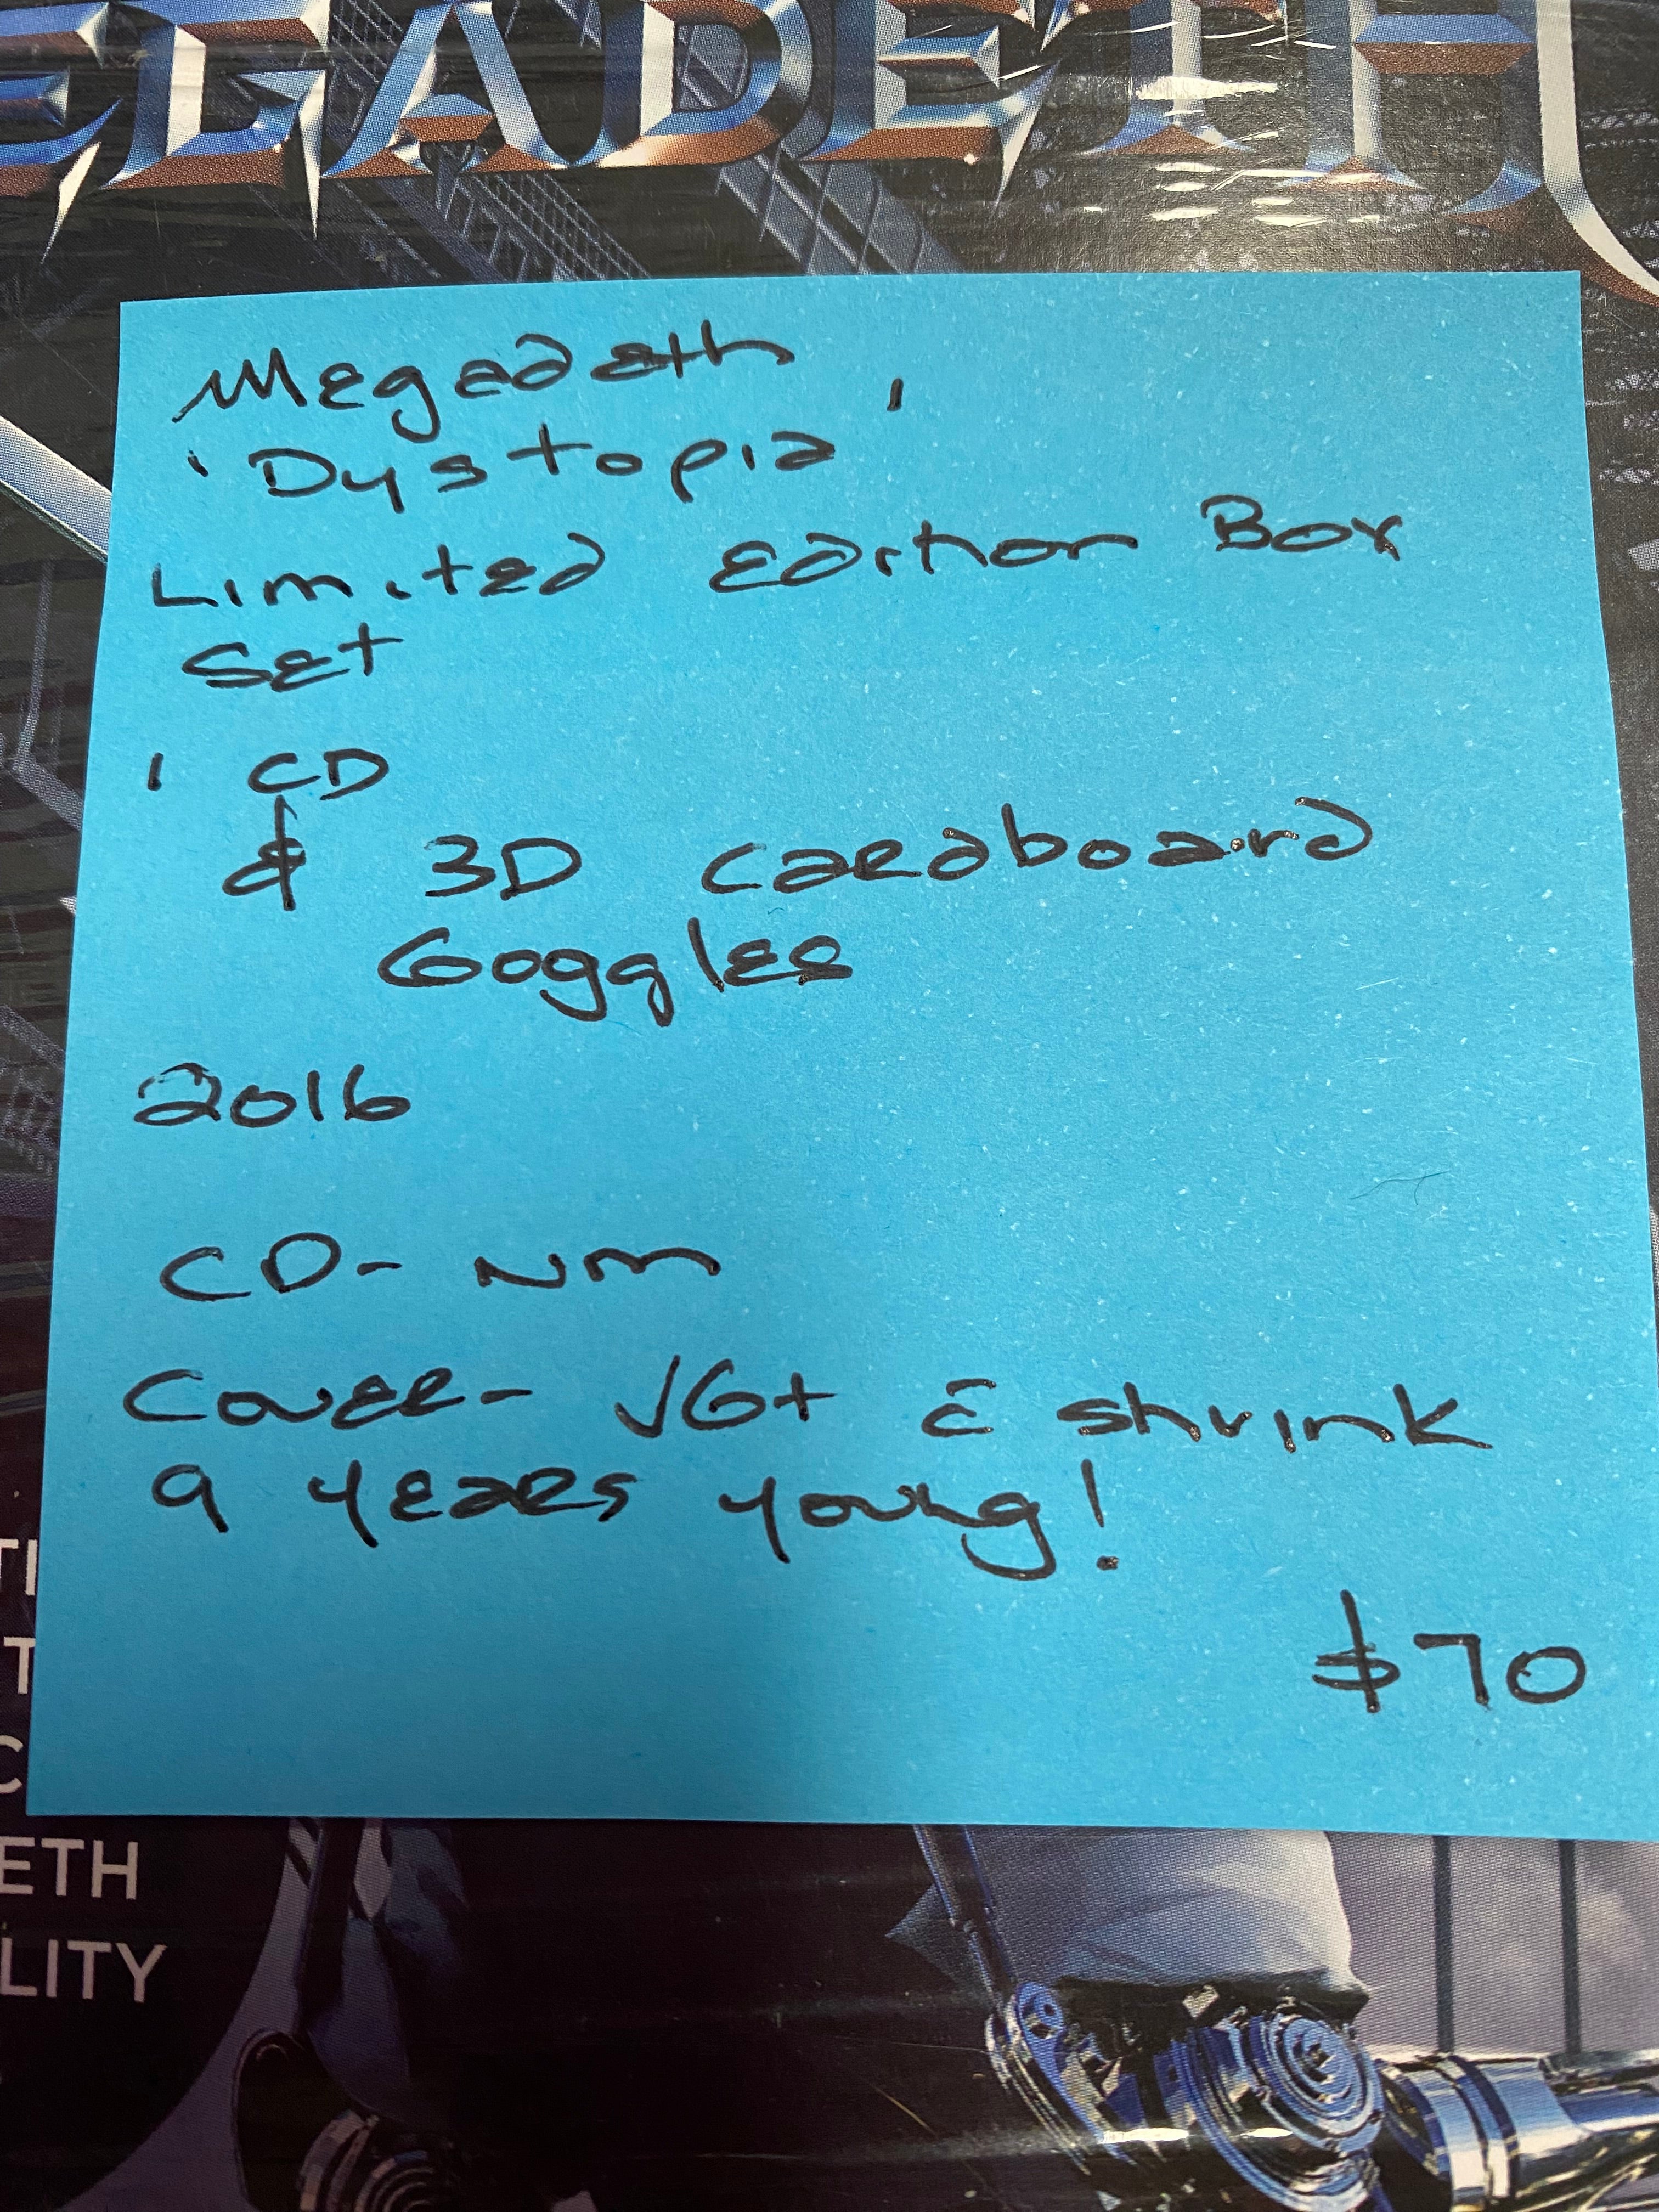 EGADETH
Megadeth
'Dystopia'
Limited Edition Box
Set
1 CD
& 3D Cardboard
Goggles
2016
CD- NM
Cover- VG+ c̄ shrink
9 years young!
$70
TI
T
C
ETH
LITY